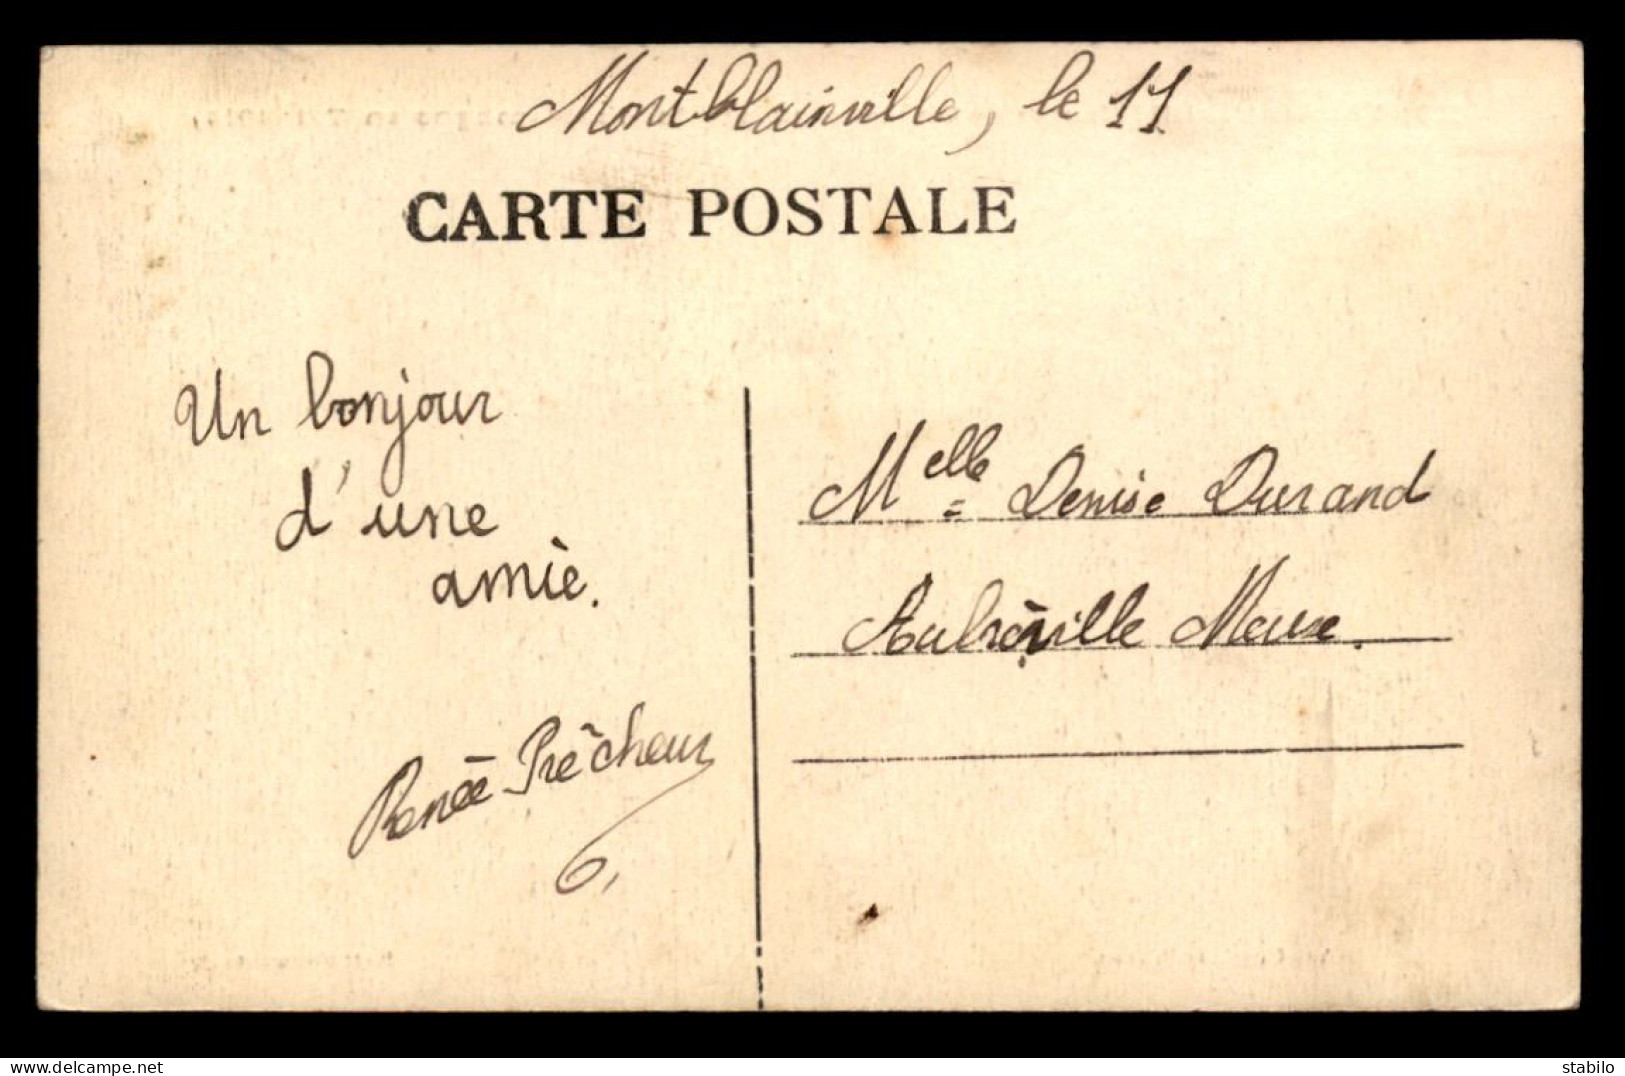 Montblainville, le 11
CARTE POSTALE
Un bonjour
d'une
amie.
Renée Prêcheur
Melle = Denise Durand
Aubréville Meuse.
delcampe.net
stabilo